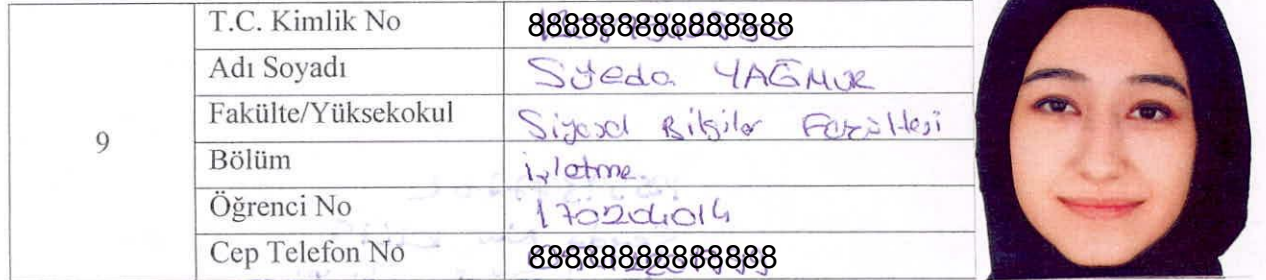 T.C. Kimlik No 888888888888888
Adı Soyadı Süeda YAĞMUR
9 Fakülte/Yüksekokul Siyasal Bilgiler Fakültesi
Bölüm İşletme
Öğrenci No 170204014
Cep Telefon No 88888888888888